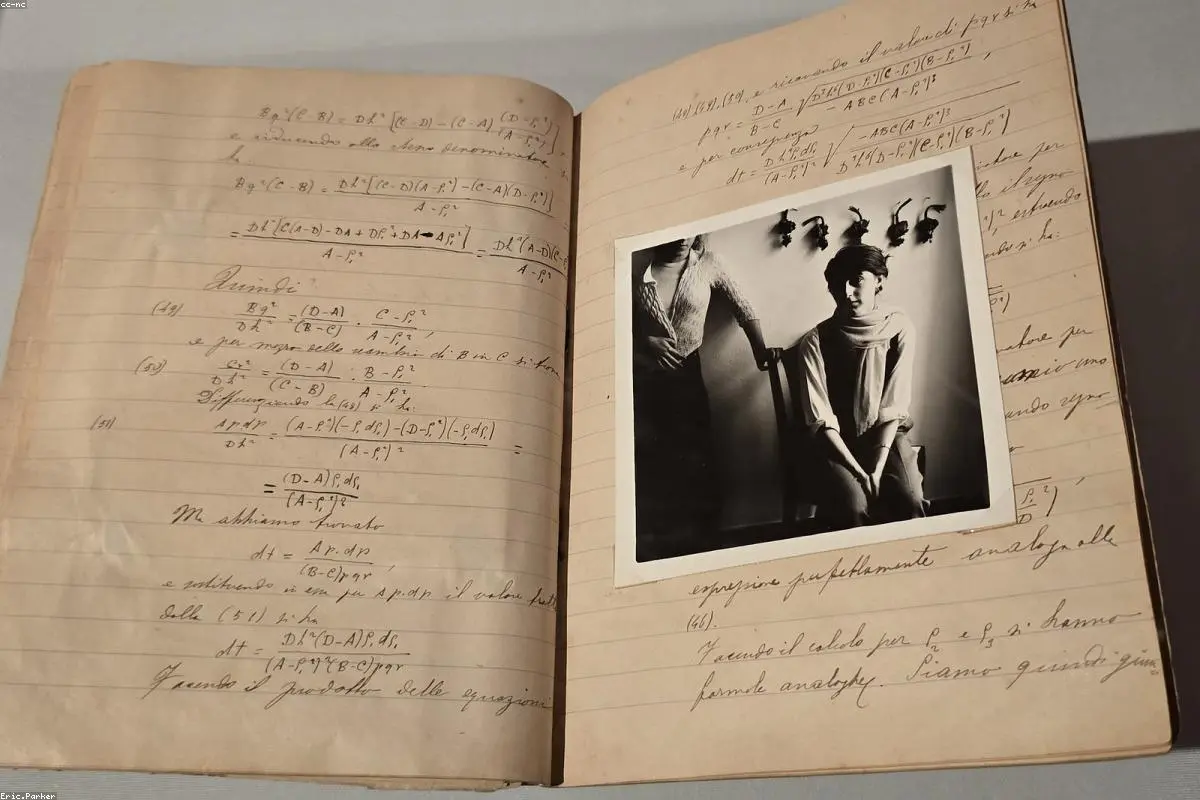 cc-nc
Bq²(C-B) = Dh²[(C-D)-(C-A)(D-ρ₁²)/(A-ρ₁²)],
e riducendo allo stesso denominatore
Bq²(C-B) = Dh²[(C-D)(A-ρ₁²)-(C-A)(D-ρ₁²)]/A-ρ₁²
= Dh²[C(A-D)-DA+Dρ₁²+DA-Aρ₁²]/A-ρ₁² = Dh²(A-D)(C-ρ
Quindi
(49) Bq²/Dh² = (D-A)/(B-C) . C-ρ₁²/A-ρ₁²,
e per mezzo dello scambio di B in C si trova
(50) Cr²/Dh² = (D-A)/(C-B) . B-ρ₁²/A-ρ₁²
Differenziando la (48) si ha:
(51) Ap dp/Dh² = (A-ρ₁²)(-ρ₁dρ₁)-(D-ρ₁²)(-ρ₁dρ₁)/(A-ρ₁²)² =
= (D-A)ρ₁dρ₁/(A-ρ₁²)²
Ma abbiamo trovato
dt = Ap.dp/(B-C)pqr,
e sostituendo in essa per Ap.dp il valore
dalla (51) si ha
dt = Dh²(D-A)ρ₁dρ₁/(A-ρ₁²)²(B-C)pqr
Facendo il prodotto delle equazioni
(48),(49),(50), e ricavando il valore di pqr si ha
pqr = D-A/B-C √D³h⁶(D-ρ₁²)(C-ρ₁²)(B-ρ₁²)/-ABC(A-ρ₁²)³,
e per conseguenza
dt = Dh²ρ₁dρ₁/(A-ρ₁²)² √-ABC(A-ρ₁²)³/D³h⁶(D-ρ₁²)(C-ρ₁²)(B-ρ₁²)
per
il segno
estraendo
si ha:
per
uno
segno
ρ₁²/D),
espressione perfettamente analoga alla
(46).
Facendo il calcolo per ρ₂ e ρ₃ si hanno
formole analoghe. Siamo quindi
Eric.Parker